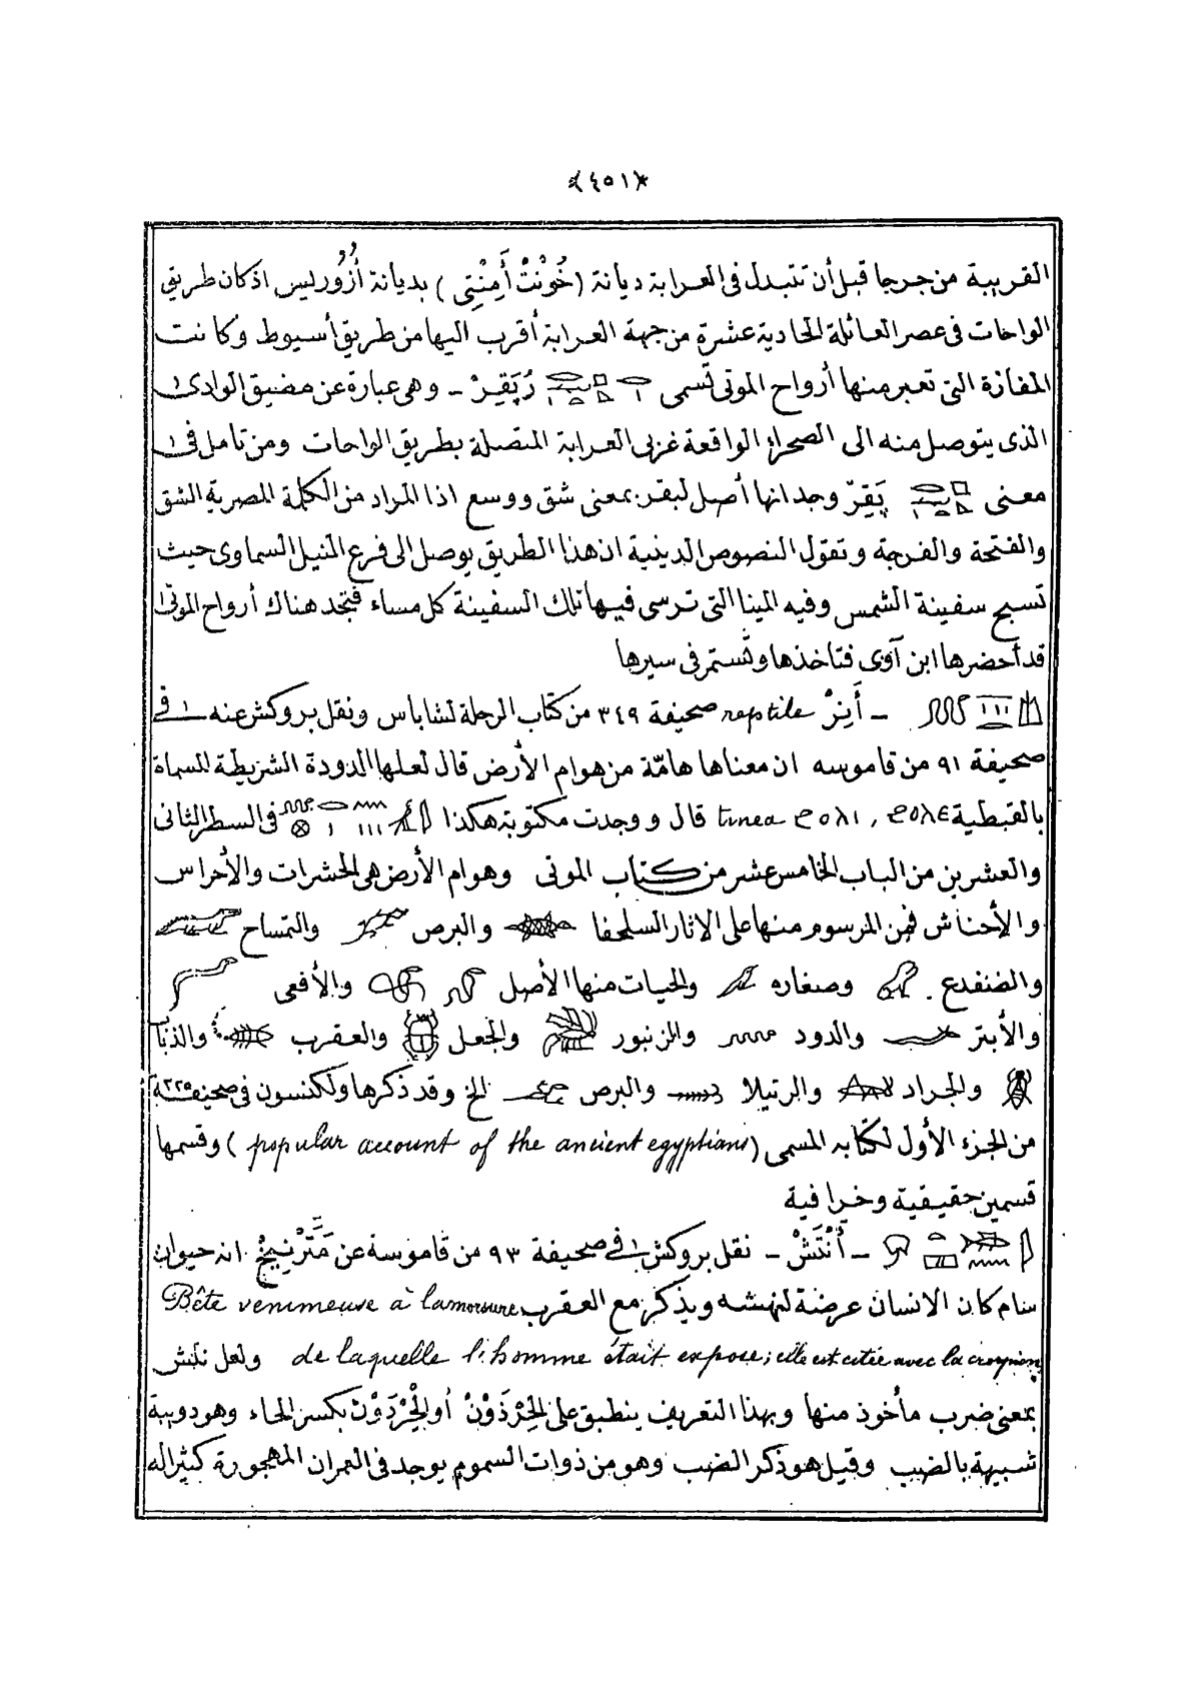 ﴿٤٥١﴾
القريبة من جرجا قبل أن تتبدل فى العرابة ديانة (خُونْتْ أَمِنْتِى) بديانة أُزُورليس اذ كان طريق
الواحات فى عصر العائلة الحادية عشرة من جهة العرابة أقرب اليها من طريق أسيوط وكانت
المفازة التى تعبر منها أرواح الموتى تسمى رُبَقِرْ - وهى عبارة عن مضيق الوادى
الذى يتوصل منه الى الصحراء الواقعة غربى العرابة المتصلة بطريق الواحات ومن تامل فى
معنى بَقِرْ وجد انها أصل لبقر بمعنى شق ووسع اذا المراد من الكلمة المصرية الشق
والفتحة والفرجة وتقول النصوص الدينية ان هذا الطريق يوصل الى فرع النيل السماوى حيث
تسبح سفينة الشمس وفيه المينا التى ترسى فيها تلك السفينة كل مساء فتجد هناك أرواح الموتى
قد أحضرها ابن آوى فتاخذها وتستمر فى سيرها
- أَيِنْ reptile صحيفة ٣٤٩ من كتاب الرحلة لشاباس ونقل بروكش عنه فى
صحيفة ٩١ من قاموسه ان معناها هامّة من هوام الأرض قال لعلها الدودة الشريطية المسماة
بالقبطية ϩⲟⲗⲉ , ϩⲟⲗⲓ tinea قال ووجدت مكتوبة هكذا فى السطر الثانى
والعشرين من الباب الخامس عشر من كتاب الموتى وهوام الأرض هى الحشرات والأحراس
والأحناش فمن المرسوم منها على الاثار السلحفا والبرص والتمساح
والضفدع وصغاره والحيات منها الأصل والأفعى
والأبتر والدود والزنبور والجعل والعقرب والذباب
والجراد والرتيلا والبرص الخ وقد ذكرها ولكنسون فى صحيفة ٢٢٥
من الجزء الأول لكتابه المسمى (popular account of the ancient egyptians) وقسمها
قسمين حقيقية وخرافية
- أَنْتَشْ - نقل بروكش فى صحيفة ٩٣ من قاموسة عن انه حيوان
سام كان الانسان عرضة لنهشه ويذكر مع العقرب Bête venimeuse à la morsure
de laquelle l'homme était expose; elle est citée avec la ولعل نتش
بمعنى ضرب مأخوذ منها وبهذا التعريف ينطبق على الحِرْذَوْنْ أو الحِرْدَوْنْ بكسر الحاء وهو دويبة
شبيهة بالضب وقيل هو ذكر الضب وهو من ذوات السموم يوجد فى العمران المهجورة كثيرا له